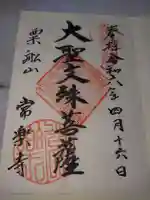 奉拝 令和六年 四月十六日
大聖文殊菩薩
栗船山
常楽寺